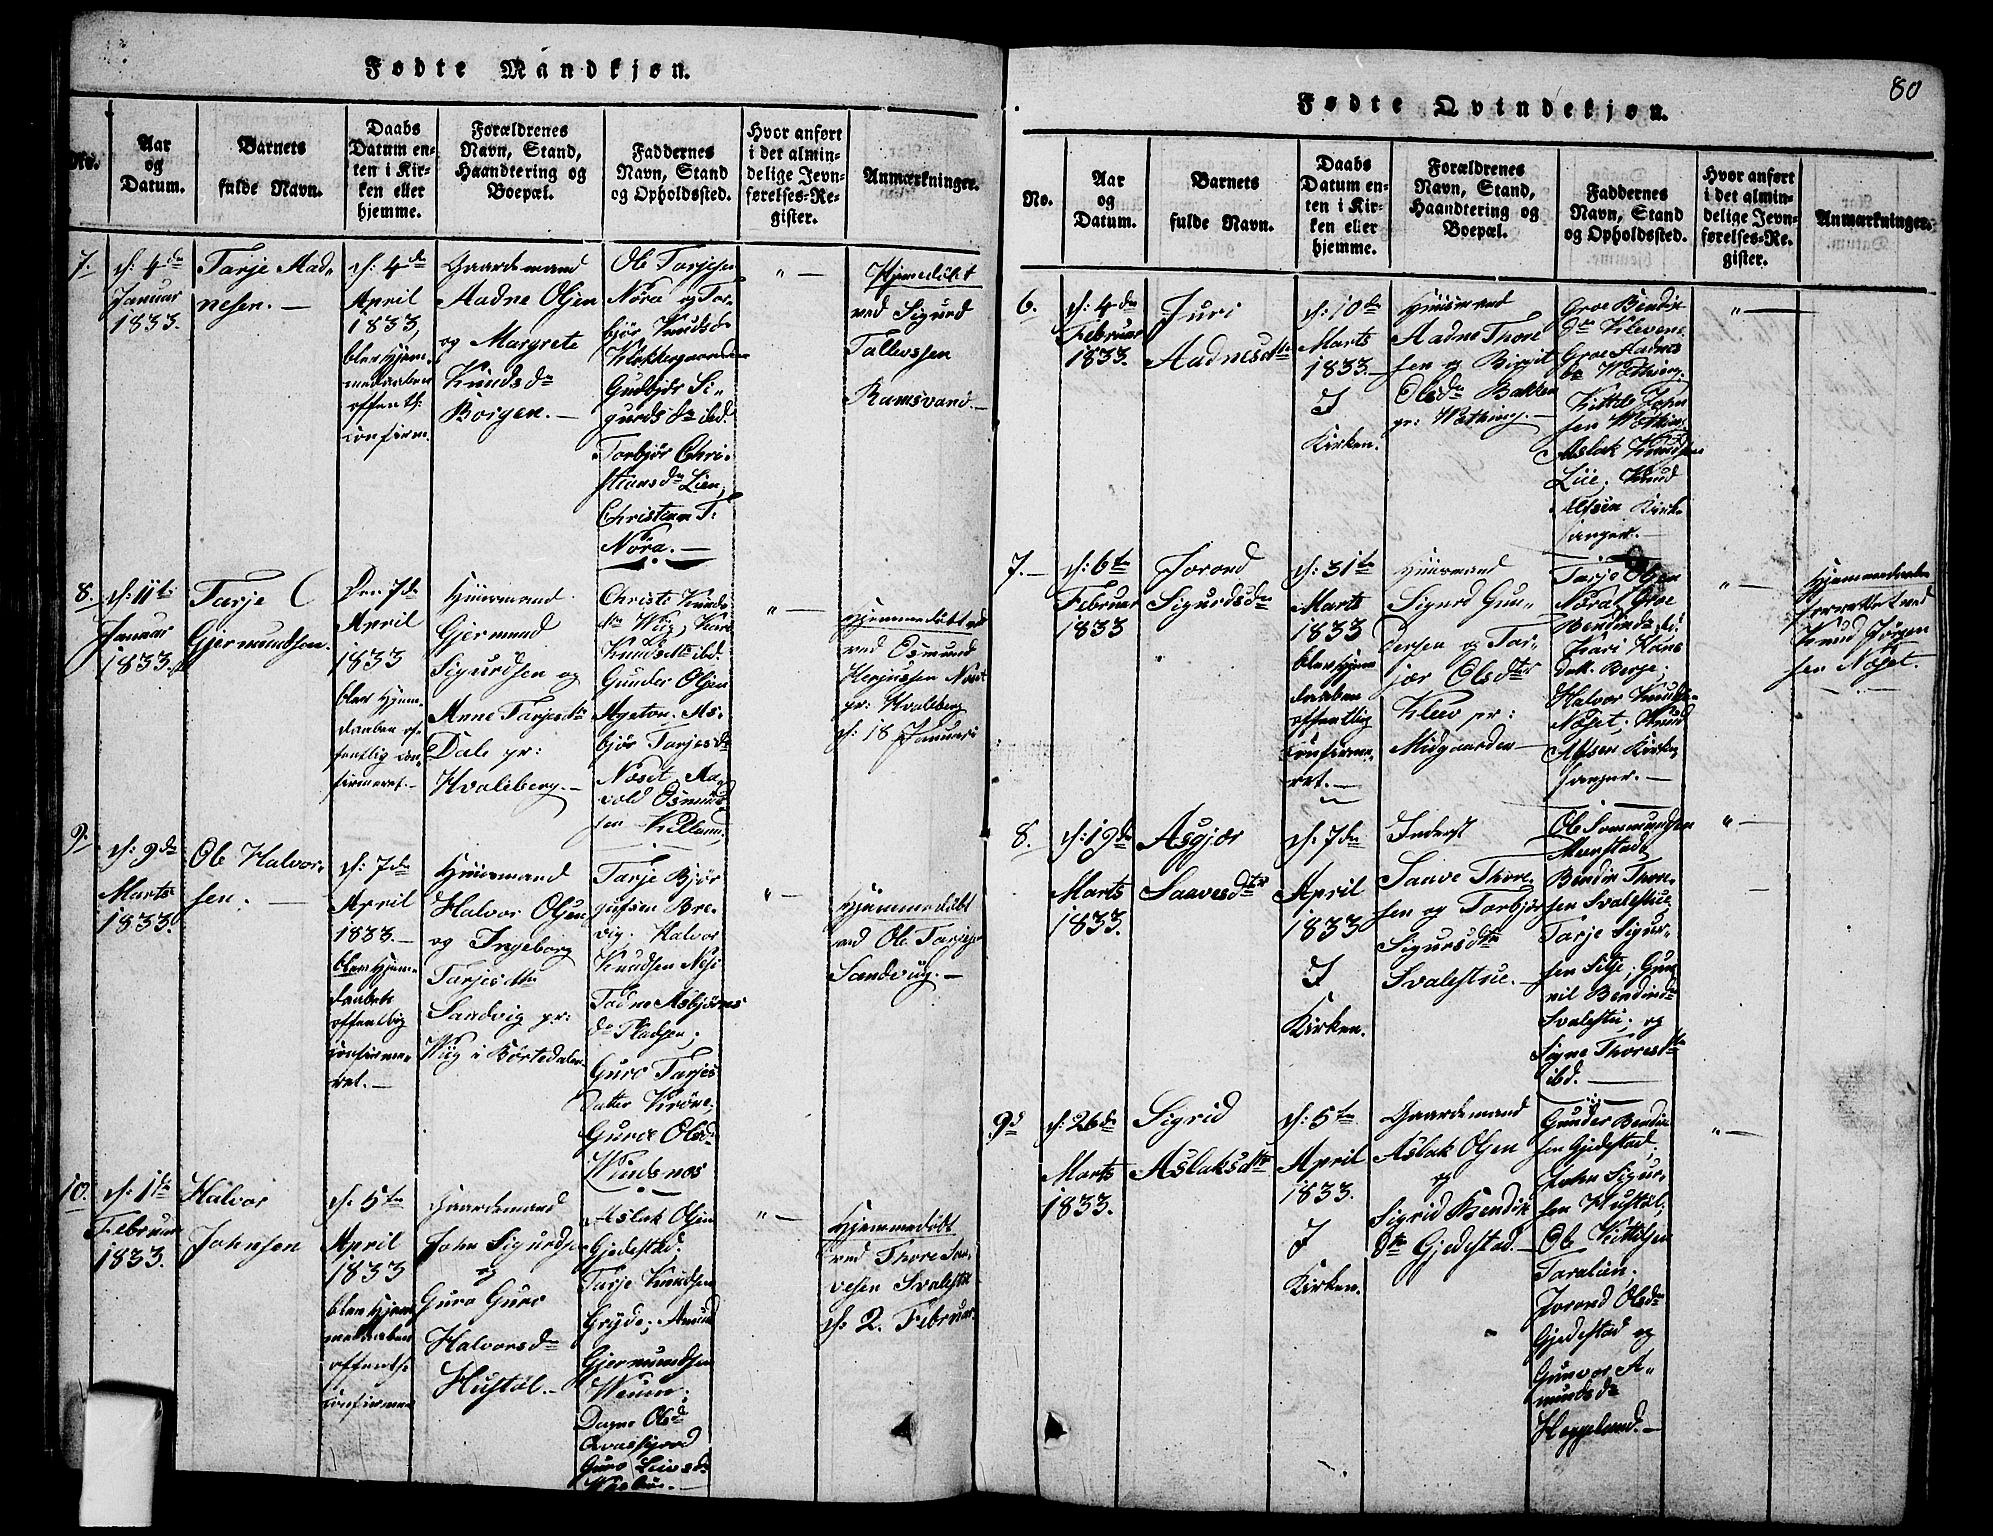 Fødte Mandkjøn.
No.
Aar
og
Datum.
Barnets
fulde Navn.
Daabs
Datum en-
ten i Kir-
ken eller
hjemme.
Forældrenes
Navn, Stand,
Haandtering og
Boepæl.
Faddernes
Navn, Stand
og Opholdssted.
Hvor anført
i det almin-
delige Jevn-
førelses-Re-
gister.
Anmærkninger.
7.
d: 4de
Januar
1833.
Tarje Aad-
nesen. —
d: 4de
April
1833,
blev hjem-
medaaben
offentl:
confirm.
Gaardemand
Aadne Olsen
og Margrete
Knudsdr
Borgen. —
Ole Tarjesen
Nora og Tor-
bjør Knudsdr
Gunbjør Si-
gurdsdr ibd.
Torbjør Chri-
stiansdr Lien,
Christian T:
Nora. —
" —
Hjemedøbt
ved Sigurd
Tallevssen
Ramsvand. —
8.
d: 11te
Januar
1833.
Tarje
Gjermundsen.
Den 7de
April
1833
blev hjem-
daaben of-
fentlig con-
firmeret. —
Huusmand
Gjermund
Sigurdsen og
Anne Tarjesdtr
Dale pr:
Hvaleberg. —
Christi Knuds-
dtr Wiig, Kari
Knudsdtr ibd.
Gunder Olsen
As-
bjør Tarjesdr
Næset,
vold Osmund
sen
" —
Hjemmedøbt
ved Osmund
Herjussen
pr: Hvaleberg
d: 18 Januari
9.
d: 9de
Marts
1833.
Ole Halvor-
sen. —
d: 7de
April
1833. —
blev hjem-
daabet
offentlig
confirme-
ret. —
Huusmand
Halvor Olsen
og Ingeborg
Tarjesdtr
Sandvig pr:
Wiig i Børtedalen
Tarje Bjør
gufsen Bre-
vig. Halvor
Knudsen
Asbjørns
dr Pladsen;
Guro Tarjes
datter
Guroe Olsdr
" —
Hjemmedøbt
ved Ole Tarjesen
Sandvig. —
10.
d: 1te
Februar
1833.
Halvor
Johnsen
d: 5te
April
1833
blev hjem
medaaben
offentl:
confirme
Gaardemand
John Sigurdsen
og
Guro Guro
Halvorsdr
Hustøl. —
Aslak Olsen
Gjedestad;
Tarje Knudsen
Gryde; Amund
Gjermundsen
Dagne Olsd
Guro
" —
Hjemmedøbt
ved Thore Saa-
vesen Svalestue
d: 2. Februar.
80
Fødte Qvindekjøn.
No.
Aar
og
Datum.
Barnets
fulde Navn.
Daabs
Datum en-
ten i Kir-
ken eller
hjemme.
Forældrenes
Navn, Stand,
Haandtering og
Boepæl.
Faddernes
Navn, Stand
og Opholdssted.
Hvor anført
i det almin-
delige Jevn-
førelses-Re-
gister.
Anmærkninger.
6.
d: 4de
Februar
1833.
Juri
Aadnesdtr
d: 10de
Marts
1833. —
I
Kirken.
Huusmand
Aadne Thore
sen og Birgit
Olsdr Bakken
pr:
Groe Bendix
dr Kleven.
Groe Aadnes
dr
Kittel John
sen
Aslak Knudsen
Lie; Knud
Alfsen Kirke
sanger. —
" —
7. —
d: 6te
Februar
1833
Jorond
Sigurdsdr
d: 31te
Marts
1833
blev hjem
daaben
offentlig
confirme-
ret. —
Huusmand
Sigurd Gun-
dersen og Tor-
bjør Olsdtr
Kleiv pr:
Midgaarden —
Tarje Olsen
Nora; Groe
Kari Hans
datt. Berge;
Halvor Knudsen
Næset; Knud
Alfsen Kirke-
sanger. —
" —
Hjemmedaaben
forrettet ved
Knud Jørgen
sen Næset.
8.
d: 19de
Marts
1833.
Asgjær
Saavesdtr
d: 7de
April
1833
I
Kirken.
Inderst
Saave Thore-
sen og Torbjør
Sigursdtr
Svalestue. —
Ole Sommundsen
Bendix Thore-
sen Svalestue
Tarje Sigur-
sen Gun-
nil Bendixdr
Svalestu; og
Signe Thoresdtr
ibd. —
" —
9d
d: 26de
Marts
1833.
Sigrid
Aslaksdtr
d: 5te
April
1833.
I
Kirken.
Gaardemand
Aslak Olsen
og
Sigrid Bendix
dtr Gjedestad. —
Gunder Bendix
sen Gjedestad;
John Sigur-
sen Hustøl.
Ole Kittelsen
Taralien.
Jorond Olsdr
Gjedestad og
Gunvor A-
mundsdr
Heggeland. —
" —